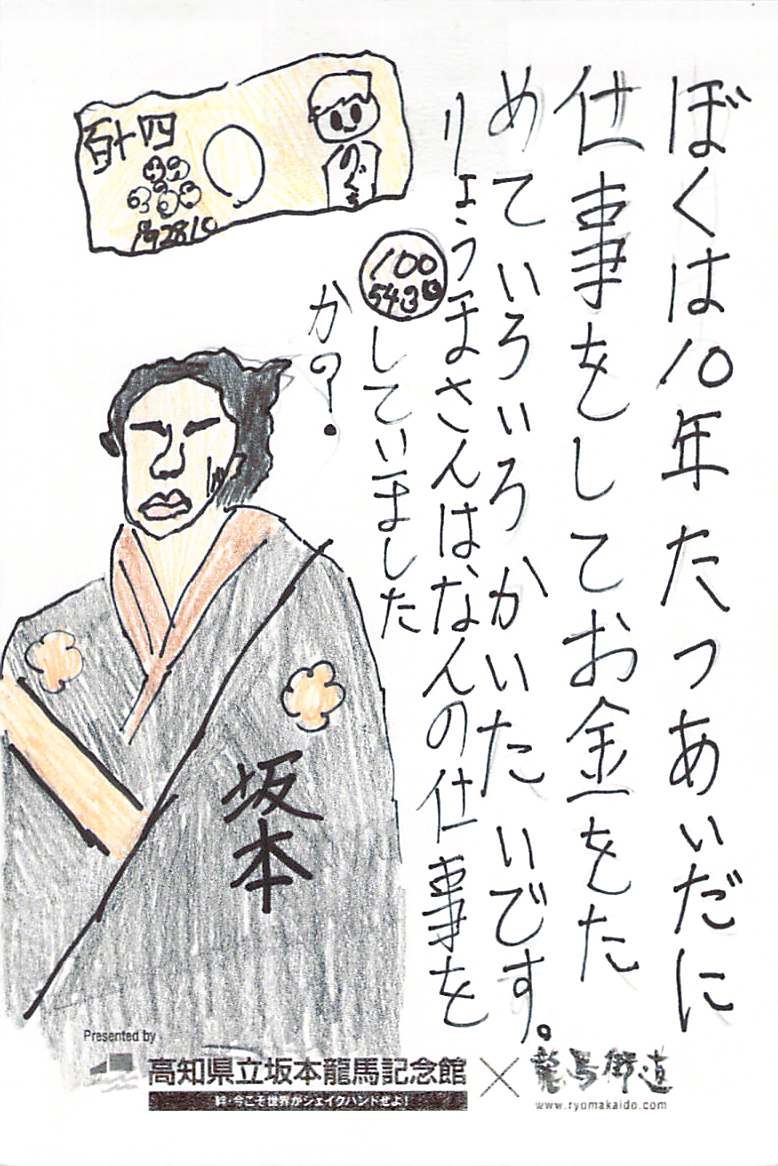 ぼくは10年たつあいだに
仕事をしてお金をた
めていろいろかいたいです。
りょうまさんは、なんの仕事を
していました
か?
百十四
のぐち
100
坂本
Presented by
高知県立坂本龍馬記念館×龍馬街道
絆・今こそ世界がシェイクハンドせよ!
www.ryomakaido.com